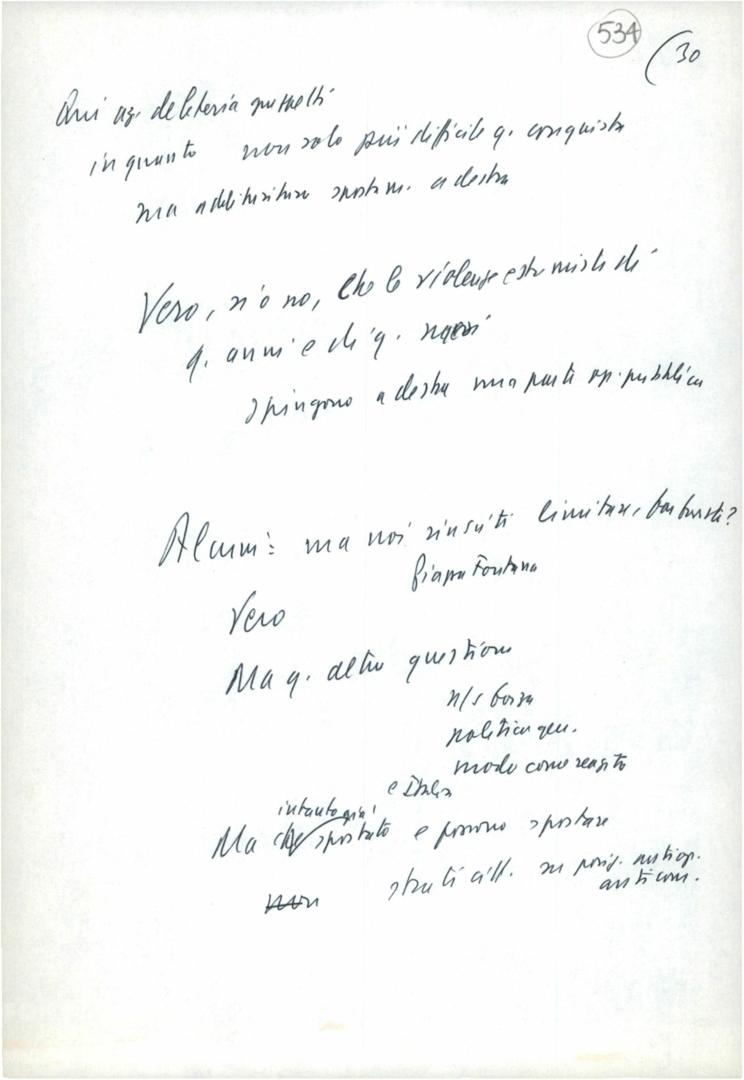 534
(30
Qui az. deleteria gruppetti
in quanto non solo più difficile q. conquista
ma addirittura spostam. a destra
Vero, sì o no, che le violenze estremiste di
q. anni e di q. mesi
spingono a destra una parte op. pubblica
Alcuni: ma noi riusciti limitare,
Piazza Fontana
Vero
Ma q. altra questione
n/s forza
politica gen.
modo come reagito
e Italia
intanto già
Ma spostato e possono spostare
strati citt. su posiz. antiop.
anticom.